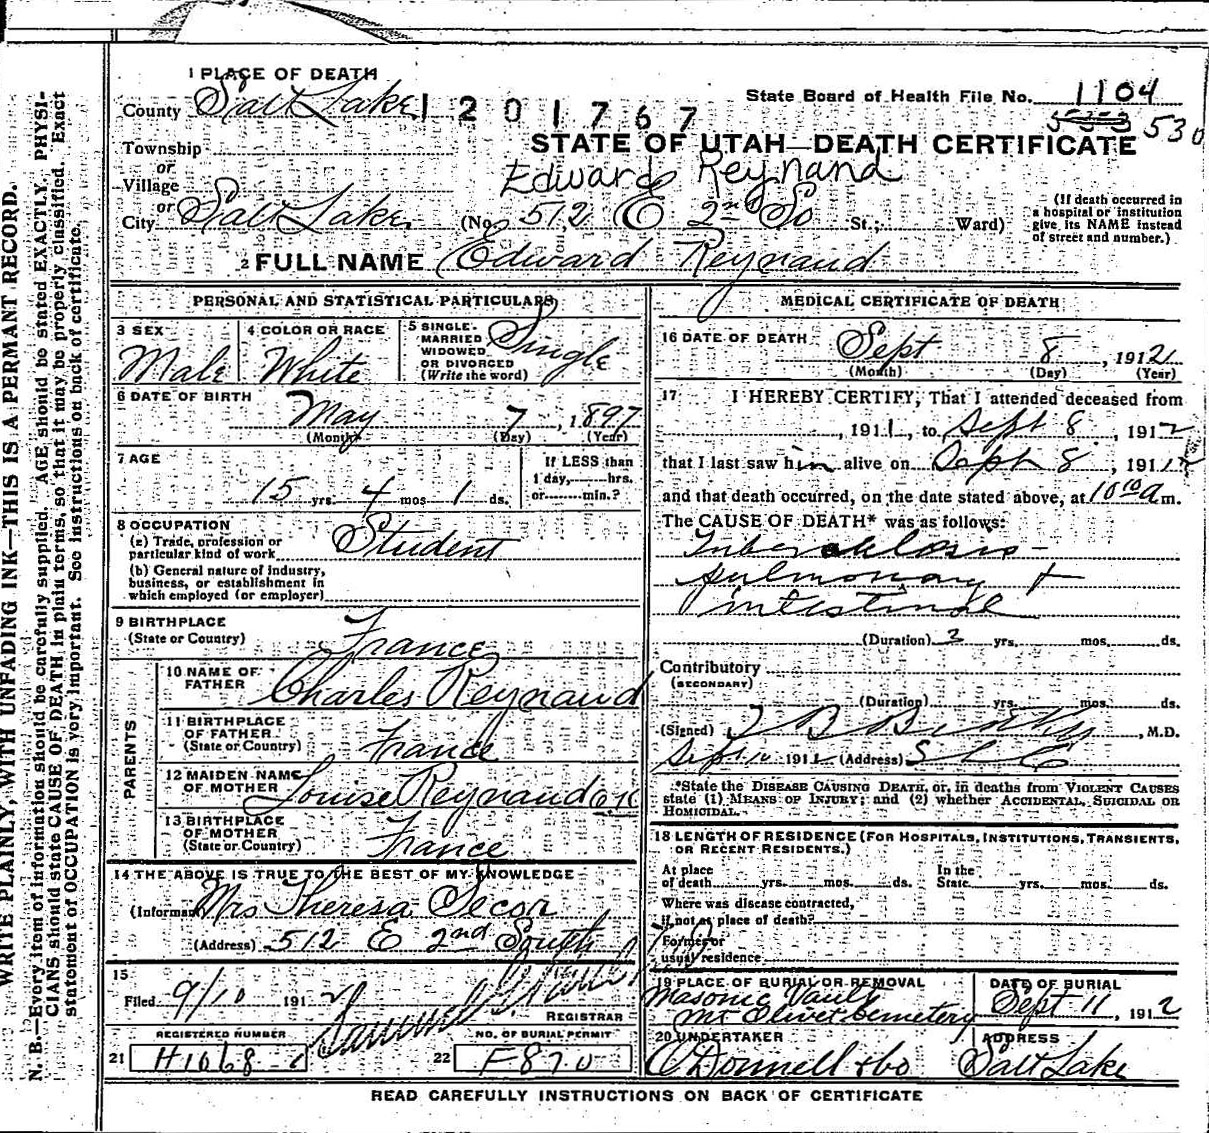 1 PLACE OF DEATH
County Salt Lake
1201767
State Board of Health File No. 1104
553 530
STATE OF UTAH—DEATH CERTIFICATE
Township
or
Village
or
City Salt Lake
Edward Reynand
(No. 512 E 2nd So St.; Ward)
(If death occurred in
a hospital or institution
give its NAME instead
of street and number.)
2 FULL NAME Edward Reynaud
PERSONAL AND STATISTICAL PARTICULARS
3 SEX
Male
4 COLOR OR RACE
White
5 SINGLE
MARRIED
WIDOWED
OR DIVORCED
(Write the word)
Single
6 DATE OF BIRTH
May 7, 1897
(Month) (Day) (Year)
7 AGE
15 yrs. 4 mos 1 ds.
If LESS than
1 day, hrs.
or min.?
8 OCCUPATION
(a) Trade, profession or
particular kind of work Student
(b) General nature of industry,
business, or establishment in
which employed (or employer)
9 BIRTHPLACE
(State or Country) France
PARENTS
10 NAME OF
FATHER Charles Reynaud
11 BIRTHPLACE
OF FATHER
(State or Country) France
12 MAIDEN NAME
OF MOTHER Louise Reynaud O.K
13 BIRTHPLACE
OF MOTHER
(State or Country) France
14 THE ABOVE IS TRUE TO THE BEST OF MY KNOWLEDGE
(Informant Mrs Theresa Secor
(Address) 512 E 2nd South
15
Filed 9/10 191 2
REGISTRAR
REGISTERED NUMBER
21 H1068-c
NO. OF BURIAL PERMIT
22 F870
MEDICAL CERTIFICATE OF DEATH
16 DATE OF DEATH
Sept 8, 1912
(Month) (Day) (Year)
17 I HEREBY CERTIFY, That I attended deceased from
, 1911, to Sept 8, 1912
that I last saw him alive on Sept 8, 191 2
and that death occurred, on the date stated above, at 10 10 a m.
The CAUSE OF DEATH* was as follows:
Tuberculosis -
pulmonary +
intestinal
(Duration) 3 yrs. mos. ds.
Contributory
(SECONDARY)
(Duration) yrs. mos. ds.
(Signed) , M.D.
Sept 10 1912 (Address) S L C
*State the DISEASE CAUSING DEATH, or, in deaths from VIOLENT CAUSES
state (1) MEANS OF INJURY; and (2) whether ACCIDENTAL, SUICIDAL OR
HOMICIDAL.
18 LENGTH OF RESIDENCE (FOR HOSPITALS, INSTITUTIONS, TRANSIENTS,
OR RECENT RESIDENTS.)
At place
of death yrs. mos. ds.
In the
State yrs. mos. ds.
Where was disease contracted,
if not at place of death?
Former or
usual residence
19 PLACE OF BURIAL OR REMOVAL
Masonic Vault
Mt Olivet Cemetery
DATE OF BURIAL
Sept 11, 1912
20 UNDERTAKER
O'Donnell & Co
ADDRESS
Salt Lake
READ CAREFULLY INSTRUCTIONS ON BACK OF CERTIFICATE
WRITE PLAINLY, WITH UNFADING INK—THIS IS A PERMANT RECORD.
N. B.—Every item of information should be carefully supplied. AGE should be stated EXACTLY. PHYSI-
CIANS should state CAUSE OF DEATH in plain terms, so that it may be properly classified. Exact
statement of OCCUPATION is very important. See instructions on back of certificate.